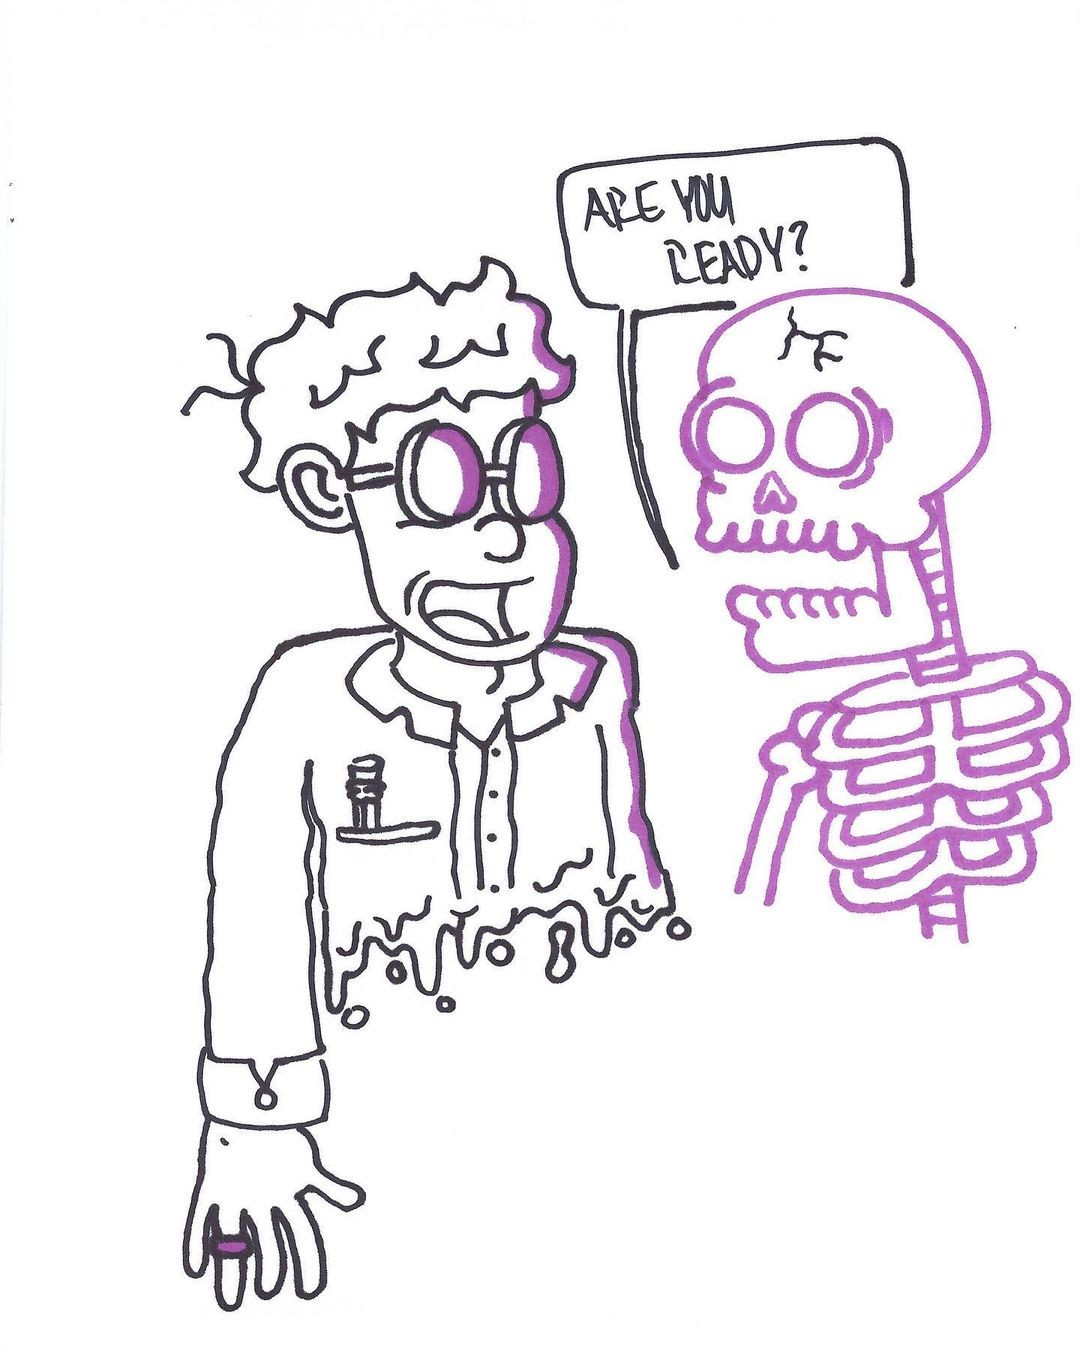 ARE YOU
READY?